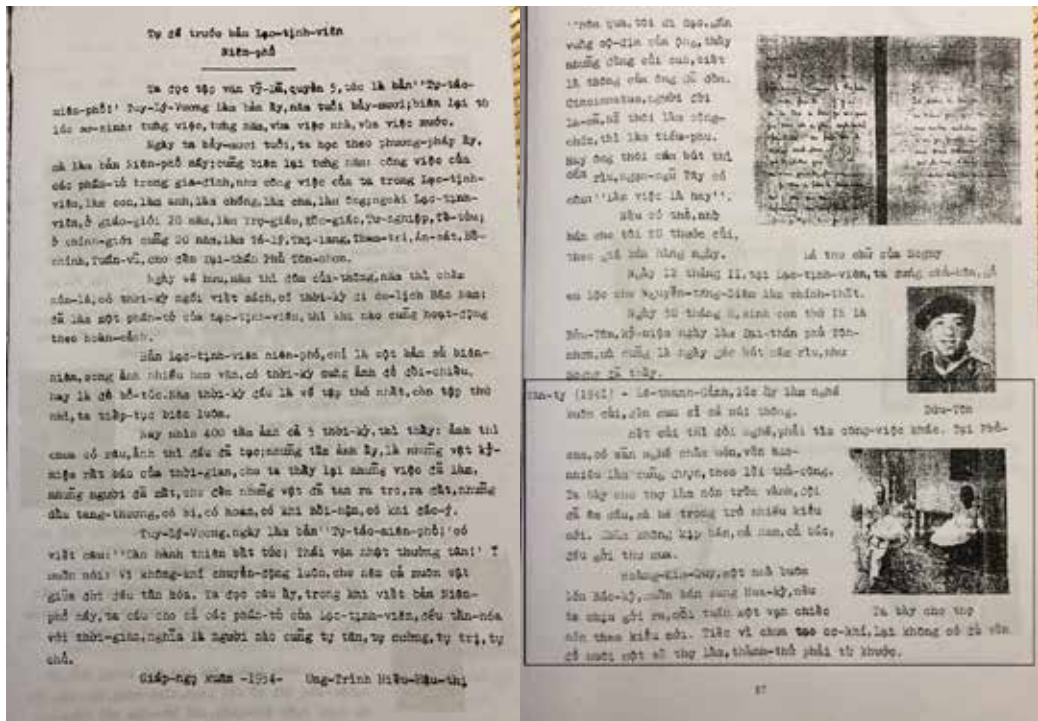 Tự đề trước bản Lạc-tịnh-viên
Niên-phổ
Ta đọc tập văn Vỹ-Dã, quyển 5, tức là bản "Tự-táo-
niên-phổ!' Tuy-Lý-Vương làm bản ấy, năm tuổi bảy-mươi; biên lại từ
lúc sơ-sinh: từng việc, từng năm, vừa việc nhà, vừa việc nước.
Ngày ta bảy-mươi tuổi, ta học theo phương-pháp ấy,
mà làm bản Niên-phổ nầy; cũng biên lại từng năm: công việc của
các phần-tử trong gia-đình, như công việc của ta trong Lạc-tịnh-
viên, làm con, làm anh, làm chồng, làm cha, làm ông; ngoài Lạc-tịnh-
viên, ở giáo-giới 20 năm, làm Trợ-giáo, Kiêm-giáo, Tư-nghiệp, Tế-tửu;
ở chính-giới cũng 20 năm, làm Tá-lý, Thị-lang, Tham-tri, Án-sát, Bố-
chính, Tuần-vũ, cho đến Đại-thần Phủ Tôn-nhơn.
Ngày về hưu, năm thì đốn củi-thông, năm thì chằm
nón-lá, có thời-kỳ ngồi viết sách, có thời-kỳ đi du-lịch Bắc Nam:
đã làm một phần-tử của Lạc-tịnh-viên, thì khi nào cũng hoạt-động
theo hoàn-cảnh.
Bản Lạc-tịnh-viên niên-phổ, chỉ là một bản sử biên-
niên, song ảnh nhiều hơn văn, có thời-kỳ cung ảnh để đối-chiếu,
hay là để bổ-túc. Năm thời-kỳ đầu là về tập thứ nhất, còn tập thứ
nhì, ta tiếp-tục biên luôn.
Nay nhìn 400 tấm ảnh cả 5 thời-kỳ, thì thấy: ảnh thì
chưa có râu, ảnh thì đầu đã bạc; những tấm ảnh ấy, là những vật kỷ-
niệm rất báu của thời-gian, cho ta thấy lại những việc đã làm,
những người đã mất, cho đến những vật đã tan ra tro, ra đất, những
dấu tang-thương, có bi, có hoan, có khi hối-hận, có khi đắc-ý.
Tuy-Lý-Vương, ngày làm bản "Tự-táo-niên-phổ!' có
viết câu: "Tân hành thiên bất tức; Thái vận nhật thường tân!' Ý
muốn nói: vì không-khí chuyển-động luôn, cho nên cả muôn vật
giữa đời đều tân hóa. Ta đọc câu ấy, trong khi viết bản Niên-
phổ nầy, ta cầu cho cả các phần-tử của Lạc-tịnh-viên, đều tân-hóa
với thời-gian, nghĩa là người nào cũng tự tân, tự cường, tự trị, tự
chủ.
Giáp-ngọ xuân -1954- Ưng-Trình Hiệu-Hậu-thị
"Hôm qua, tôi đi dạo, gần
vùng cộ-địa của Ông, thấy
những đống củi cui, biết
là thông của ông đã đốn.
Cincinnatus, người đời
La-mã, hễ thôi làm công-
chức, thì làm tiều-phu.
Nay ông thôi cầm bút thì
cầm rìu, ngạn-ngữ Tây có
câu: "Làm việc là hay".
Nếu có thể, nhờ
bán cho tôi 20 thước củi,
theo giá bán hàng ngày.
Lá thơ chữ của Sogny
Ngày 12 tháng II, tại Lạc-tịnh-viên, ta đứng chủ-hôn, gả
em Lộc cho Nguyễn-tăng-Diêm làm chính-thất.
Ngày 30 tháng 8, sinh con thứ 15 là
Bửu-Tôn, kỷ-niệm ngày làm Đại-thần phủ Tôn-
nhơn, mà cũng là ngày gác bút cầm rìu, như
Sogny đã thấy.
Bửu-Tôn
Tân-tỵ (1941) - Lê-thanh-Cảnh, lúc ấy làm nghề
buôn củi, đến mua sỉ cả núi thông.
Hết củi thì đổi nghề, phải tìm công-việc khác. Tại Phú-
có sẵn nghề chằm nón, vốn
nhiêu làm cũng được, theo lối thủ-công.
Ta bày cho thợ làm nón trên vành, đội
đã êm đầu, mà bề trong trổ nhiều kiểu
mới. Chằm không kịp bán, cả nam, cả bắc,
đều gởi thơ mua.
Hoàng-Kim-Quy, một nhà buôn
lớn Bắc-kỳ, muốn bán sang Hoa-kỳ, nếu
ta chịu gởi ra, mỗi tuần một vạn chiếc
Ta bày cho thợ
nón theo kiểu mới. Tiếc vì chưa tạo cơ-khí, lại không có đủ vốn
để nuôi một số thợ làm, thành-thử phải từ khước.
87